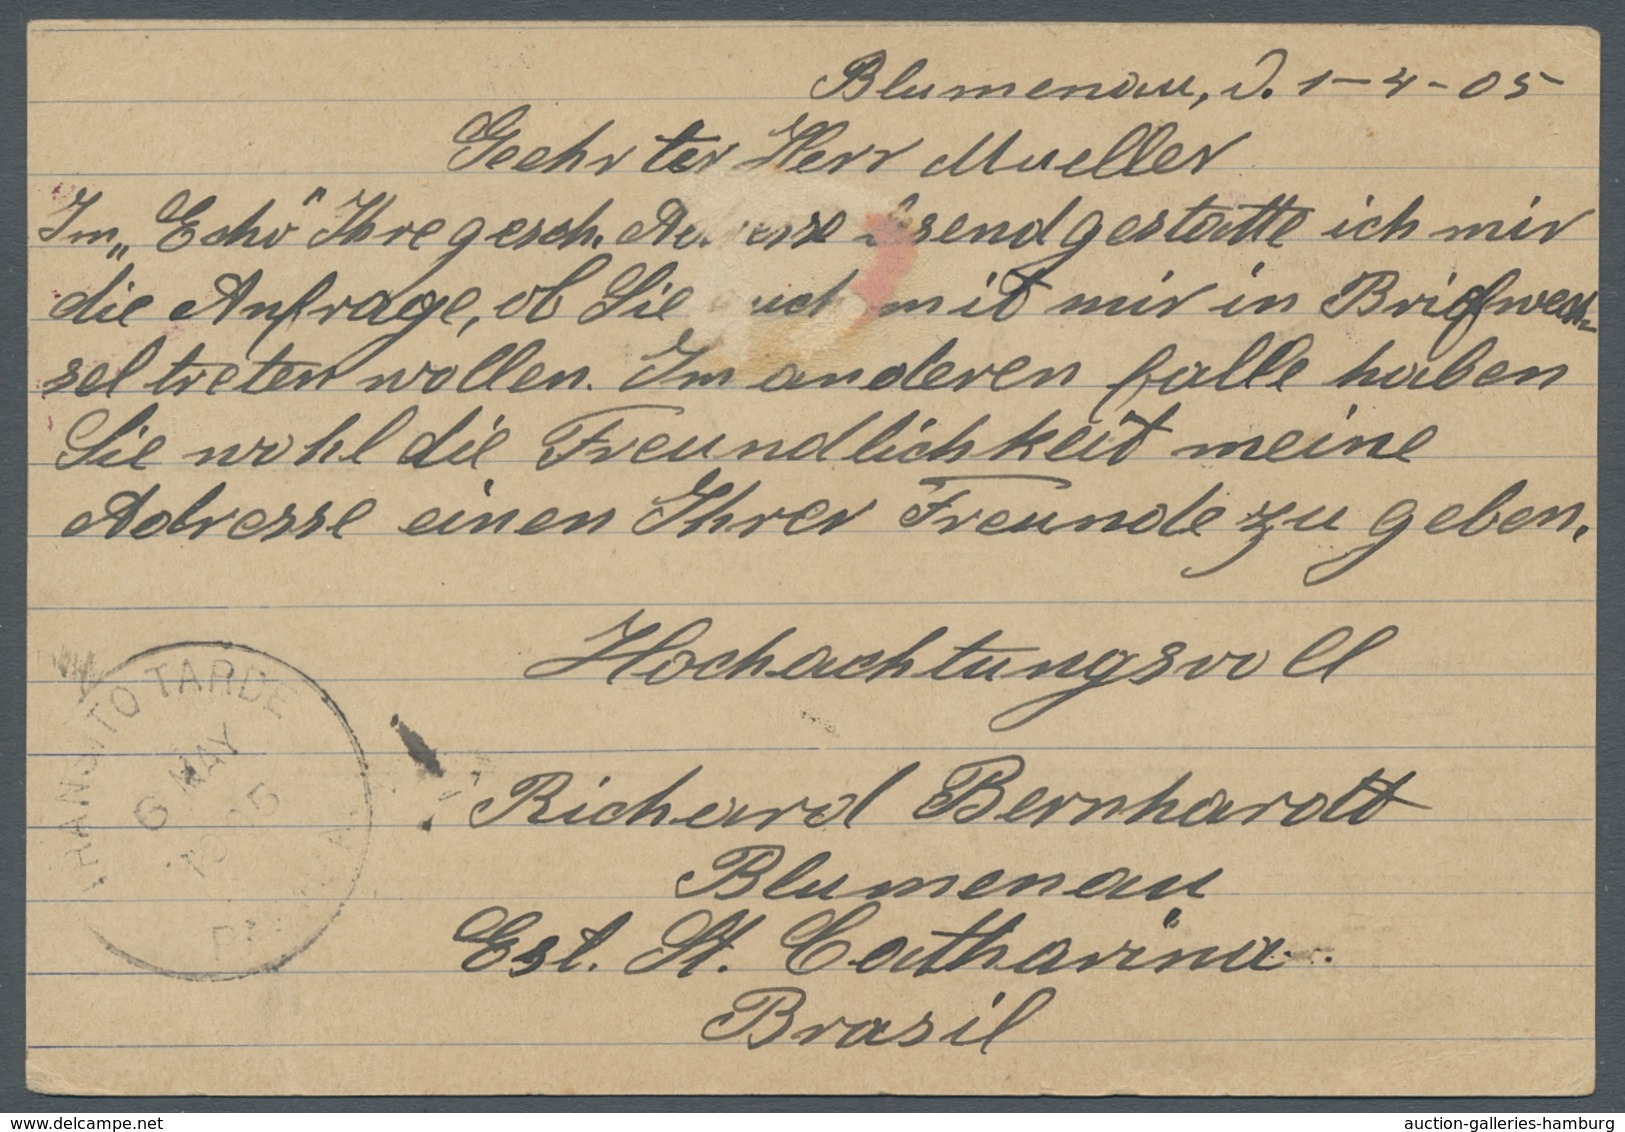 Blumenau, d. 1-4-05
Geehrter Herr Mueller
Im „Echo“ Ihre gesch. Adresse lesend gestatte ich mir
die Anfrage, ob Sie auch mit mir in Briefwech=
sel treten wollen. Im anderen falle haben
Sie wohl die Freundlichkeit meine
Adresse einen Ihrer Freunde zu geben.
Hochachtungsvoll
Richard Bernhardt
Blumenau
Est. St. Catharina.
Brasil
TRANSITO TARDE
6 MAY
1905
auction-galleries-hamburg